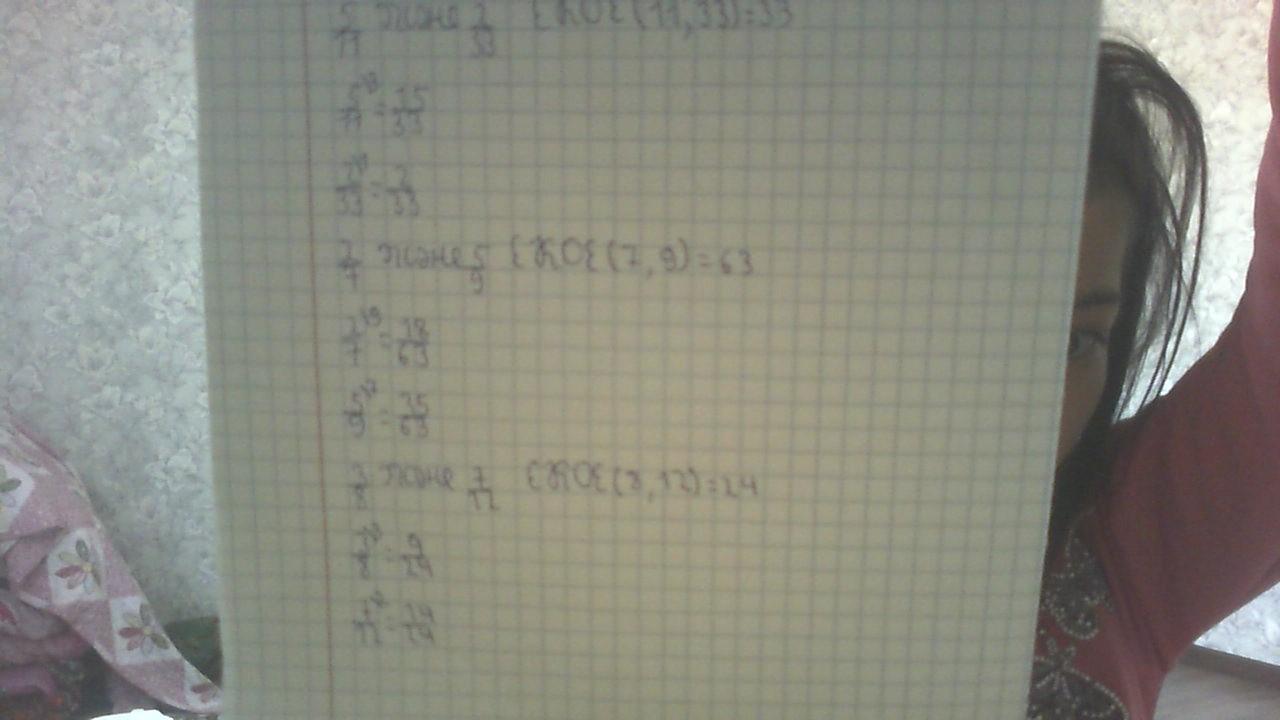 5/11 және 2/33 ЕКОЕ(11,33)=33
5/11 = 15/33
2/33 = 2/33
2/7 және 5/9 ЕКОЕ(7,9)=63
2/7 = 18/63
5/9 = 35/63
3/8 және 7/12 ЕКОЕ(8,12)=24
3/8 = 9/24
7/12 = 14/24